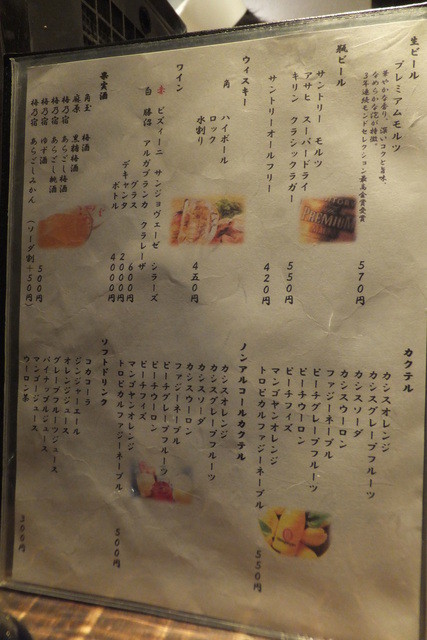 生ビール
プレミアムモルツ
華やかな香り、深いコクと旨味、
なめらかな泡が特徴。
3年連続モンドセレクション最高金賞受賞
570円
瓶ビール
サントリー モルツ
アサヒ スーパードライ
キリン クラシックラガー
550円
サントリーオールフリー
420円
ウィスキー
角 ハイボール
ロック
水割り
450円
ワイン
赤 ビズィーニ サンジョヴェーゼ シラーズ
白 勝沼 アルガブランカ クラレーザ
グラス 600円
デキャンタ 2000円
ボトル 4000円
果実酒
角玉 梅酒
麻原 黒糖梅酒
梅乃宿 あらごし梅酒
梅乃宿 あらごし桃酒
梅乃宿 ゆず酒
梅乃宿 あらごしみかん
500円
(ソーダ割+50円)
カクテル
カシスオレンジ
カシスグレープフルーツ
カシスソーダ
カシスウーロン
ファジーネーブル
ピーチグレープフルーツ
ピーチウーロン
ピーチフィズ
マンゴヤンオレンジ
トロピカルファジーネーブル
550円
ノンアルコールカクテル
カシスオレンジ
カシスグレープフルーツ
カシスソーダ
カシスウーロン
ファジーネーブル
ピーチグレープフルーツ
ピーチウーロン
ピーチフィズ
マンゴヤンオレンジ
トロピカルファジーネーブル
500円
ソフトドリンク
コカコーラ
ジンジャーエール
オレンジジュース
グレープフルーツジュース
パイナップルジュース
マンゴージュース
ウーロン茶
300円
PREMIUM